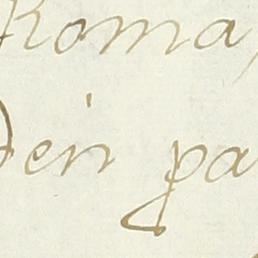 Roma,
Den pa